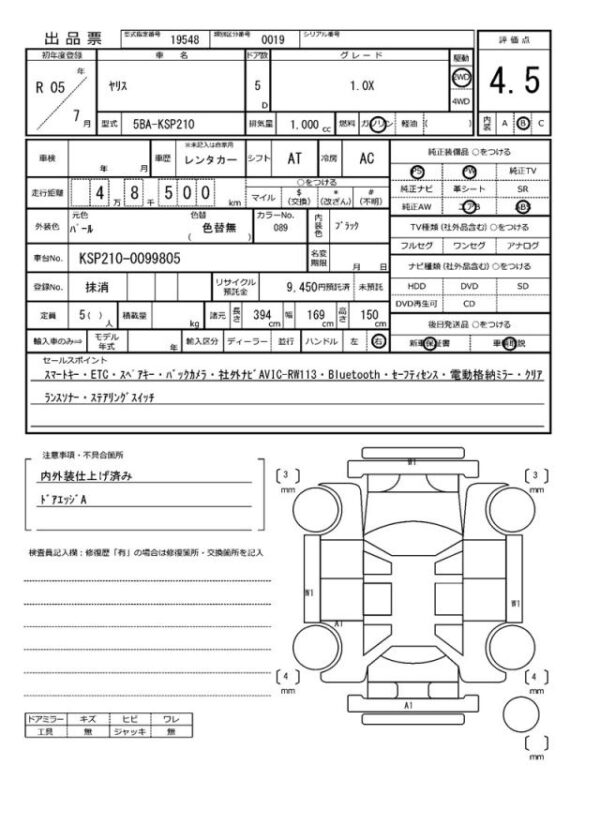 出品票 型式指定番号 19548 類別区分番号 0019 シリアル番号
評価点
初年度登録 車名 ドア数 グレード 駆動
R 05 年 ヤリス 5 D 1.0X 2WD 4.5
4WD
7 月 型式 5BA-KSP210 排気量 1,000 cc 燃料 ガソリン 軽油 ( ) 内装 A B C
車検 年 月 車歴 ※未記入は自家用 レンタカー シフト AT 冷房 AC
純正装備品 ○をつける
PS PW 純正TV
走行距離 4 万 8 千 5 0 0 km ○をつける
マイル $ (交換) * (改ざん) # (不明)
純正ナビ 革シート SR
純正AW エアB ABS
外装色 元色 パール 色替 色替無 ( カラーNo. 089 内装色 ブラック
TV種類(社外品含む)○をつける
フルセグ ワンセグ アナログ
車台No. KSP210-0099805 名変期限 月 日
ナビ種類(社外品含む)○をつける
登録No. 抹消 リサイクル預託金 9,450円預託済 未預託
HDD DVD SD
DVD再生可 CD
定員 5( ) 人 積載量 kg 諸元 長さ 394 cm 幅 169 cm 高さ 150 cm
後日発送品 ○をつける
輸入車のみ⇒ モデル年式 年 輸入区分 ディーラー 並行 ハンドル 左 右
新車保証書 車輌取説
セールスポイント
スマートキー・ETC・スペアキー・バックカメラ・社外ナビAVIC-RW113・Bluetooth・セーフティセンス・電動格納ミラー・クリア
ランスソナー・ステアリングスイッチ
注意事項・不具合箇所
内外装仕上げ済み
ドアエッジA
検査員記入欄：修復歴「有」の場合は修復箇所・交換箇所を記入
W1
( 3 ) mm
( 3 ) mm
W1
W1
A1
( 4 ) mm
( 4 ) mm
A1
( ) mm
ドアミラー キズ ヒビ ワレ
工具 無 ジャッキ 無